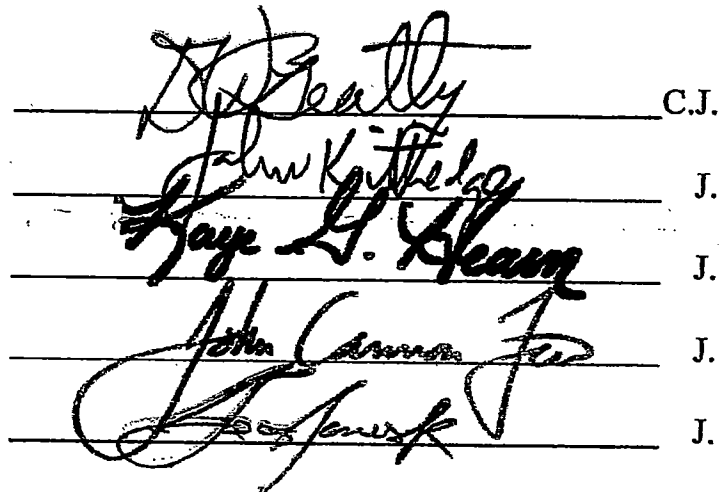 Beatty C.J.
John Kittredge J.
Kaye G. Hearn J.
John Cannon Few J.
James J.